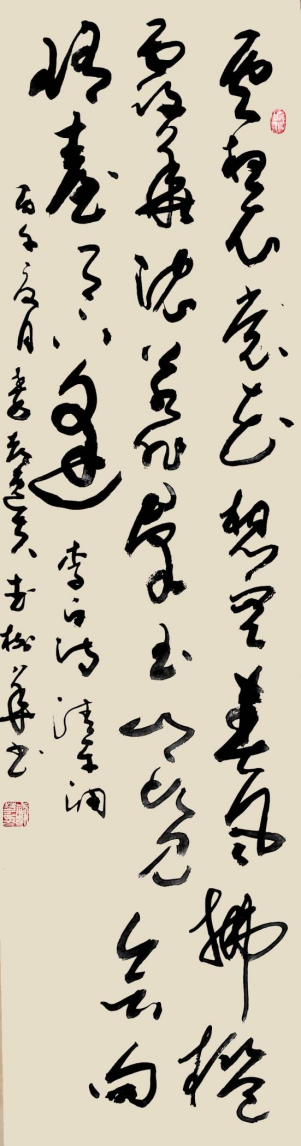 雲想衣裳花想容春風拂檻
露華濃若非群玉山頭見會向
瑤臺月下逢 李白詩 清平調
丙午夏月 樹華書